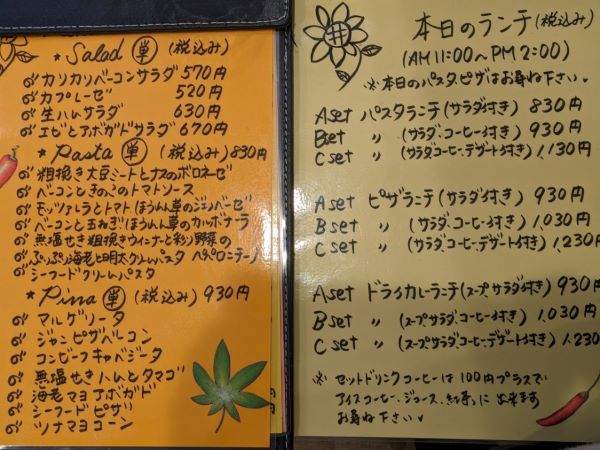 * Salad 単 (税込み)
カリカリベーコンサラダ 570円
カプレーゼ 520円
生ハムサラダ 630円
エビとアボガドサラダ 670円
* Pasta 単 (税込み) 830円
粗挽き大豆ミートとナスのボロネーゼ
ベーコンときのこのトマトソース
モッツァレラとトマト(ほうれん草のジェノベーゼ
ベーコンと玉ねぎ、ほうれん草のカルボナーラ
無塩せき粗挽きウィンナーと彩り野菜の
ペペロンチーノ
ぷりぷり海老と明太クリームパスタ
シーフードクリームパスタ
* Pizza 単 (税込み) 930円
マルゲリータ
ジャンピザベーコン
コンビーフキャベジータ
無塩せきハムとタマゴ
海老マヨアボガド
シーフードピザ
ツナマヨコーン
本日のランチ (税込み)
(AM11:00~PM2:00)
※本日のパスタ、ピザはお尋ね下さい。
Aset パスタランチ (サラダ付き) 830円
Bset 〃 (サラダ、コーヒー付き) 930円
Cset 〃 (サラダ、コーヒー、デザート付き) 1,130円
Aset ピザランチ (サラダ付き) 930円
Bset 〃 (サラダ、コーヒー付き) 1,030円
Cset 〃 (サラダ、コーヒー、デザート付き) 1,230円
Aset ドライカレーランチ (スープ、サラダ付き) 930円
Bset 〃 (スープ、サラダ、コーヒー付き) 1,030円
Cset 〃 (スープ、サラダ、コーヒー、デザート付き) 1,230
※ セットドリンクコーヒーは100円プラスで
アイスコーヒー、ジュース、紅茶に出来ます
お尋ね下さい